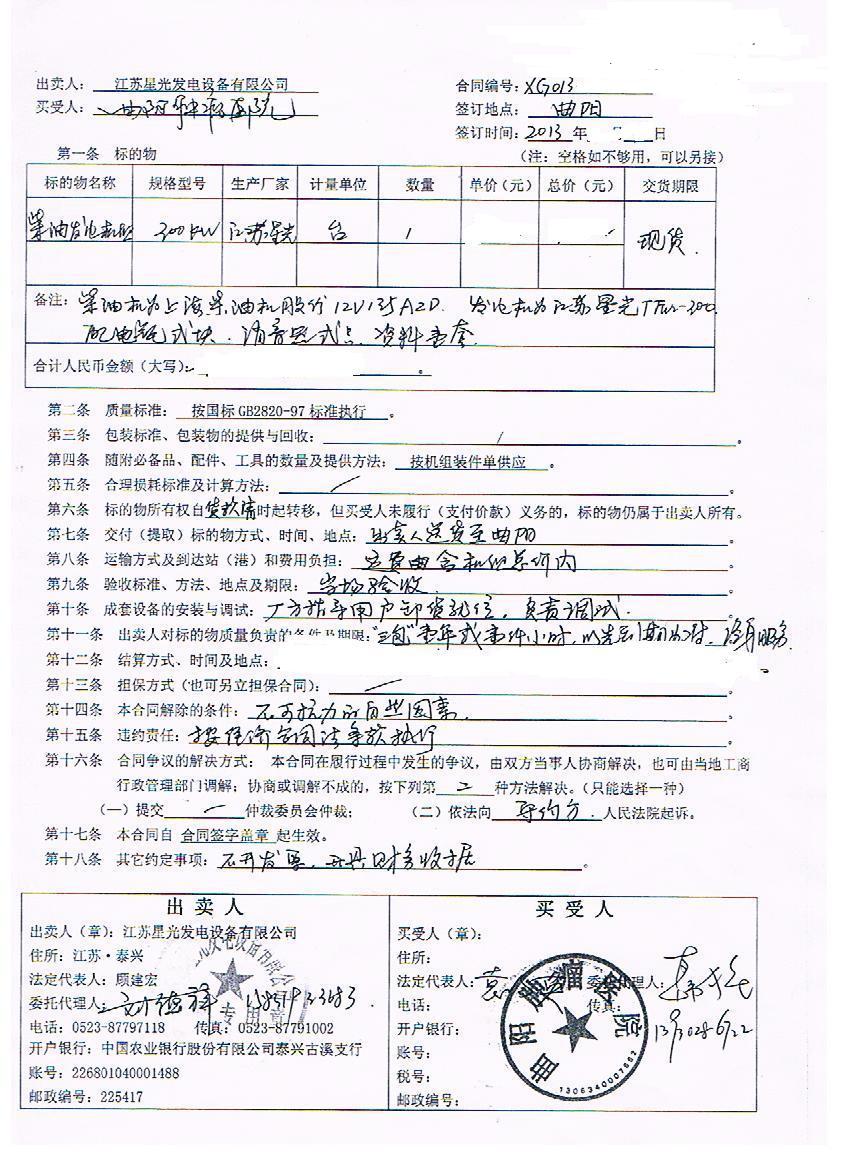 出卖人： 江苏星光发电设备有限公司 合同编号：XG013
买受人：曲阳肿瘤医院 签订地点：曲阳
签订时间：2013年 日
第一条 标的物 （注：空格如不够用，可以另接）
标的物名称 规格型号 生产厂家 计量单位 数量 单价（元） 总价（元） 交货期限
柴油发电机组 300KW 江苏星光 台 1 现货.
备注：柴油机为上海柴油机股份12V135AZD. 发电机为江苏星光TFW-300.
配电瓶式块. 消音器式只. 资料壹套
合计人民币金额（大写）： 。
第二条 质量标准： 按国标GB2820-97标准执行 。
第三条 包装标准、包装物的提供与回收： / 。
第四条 随附必备品、配件、工具的数量及提供方法： 按机组装件单供应 。
第五条 合理损耗标准及计算方法： / 。
第六条 标的物所有权自货款清时起转移，但买受人未履行（支付价款）义务的，标的物仍属于出卖人所有。
第七条 交付（提取）标的物方式、时间、地点：出卖人送货至曲阳 。
第八条 运输方式及到达站（港）和费用负担：运费由含机组总价内 。
第九条 验收标准、方法、地点及期限：当场验收. 。
第十条 成套设备的安装与调试：厂方指导用户卸货就位，负责调试. 。
第十一条 出卖人对标的物质量负责的条件及期限："三包"壹年或壹仟小时，以先到期为准，终身服务.
第十二条 结算方式、时间及地点：
第十三条 担保方式（也可另立担保合同）： / 。
第十四条 本合同解除的条件：不可抗力的自然因素. 。
第十五条 违约责任：按经济合同法条款执行 。
第十六条 合同争议的解决方式：本合同在履行过程中发生的争议，由双方当事人协商解决，也可由当地工商
行政管理部门调解；协商或调解不成的，按下列第 二 种方法解决。（只能选择一种）
（一）提交 / 仲裁委员会仲裁； （二）依法向 守约方. 人民法院起诉。
第十七条 本合同自 合同签字盖章 起生效。
第十八条 其它约定事项：不开发票，开具财务收据 。
出卖人 买受人
出卖人（章）：江苏星光发电设备有限公司 买受人（章）：
住所：江苏·泰兴 住所：
法定代表人：顾建宏 法定代表人： 委托代理人：
委托代理人： 电话： 传真：
电话：0523-87797118 传真：0523-87791002 开户银行：
开户银行：中国农业银行股份有限公司泰兴古溪支行 账号：
账号：226801040001488 税号：
邮政编号：225417 邮政编号：
专用章
曲阳肿瘤医院
1306340007662